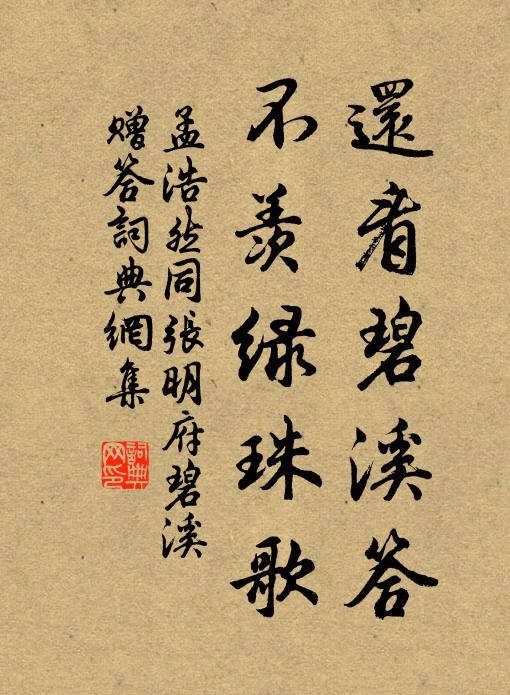 還看碧溪答
不羨綠珠歌
孟浩然同張明府碧溪
贈答詞典網集
詞典
网印